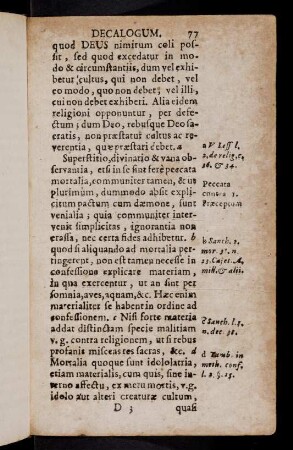 DECALOGUM. 77
quod DEUS nimirum coli pos-
sit, sed quod excedatur in mo-
do & circumstantiis, dum vel exhi-
betur cultus, qui non debet, vel
eo modo, quo non debet; vel illi,
cui non debet exhiberi. Alia eidem
religioni opponuntur, per defe-
ctum; dum Deo, rebusque Deo sa-
cratis, non præstatur cultus ac re-
verentia, quæ præstari debet. a
a V. Less l.
2. de relig. c,
36. & 34.
Superstitio, divinatio & vana ob-
servantia, etsi in se sint fere peccata
mortalia, communiter tamen, & ut
plurimum, dummodo absit expli-
citum pactum cum dæmone, sunt
venialia; quia communiter inter-
venit simplicitas, ignorantia non
crassa, nec certa fides adhibetur. b
Peccata
contra 1.
Præceptum
quod si aliquando ad mortalia per-
tingerent, non est tamen necesse in
confessione explicare materiam,
in qua exercentur, ut an sint per
somnia, aves, aquam, &c. Hæc enim
materialiter se habent in ordine ad
confessionem. c Nisi forte materia
addat distinctam specie malitiam
v. g. contra religionem, ut si rebus
profanis misceas res sacras, &c. d
b Sanch. l.
c Sanch. l. 2.
n. dec. 38.
Mortalia quoque sunt idololatria,
etiam materialis, cum quis, sine in-
terno affectu, ex metu mortis, v. g.
idolo aut alteri creaturæ cultum,
d Tamb. in
meth. conf.
l. 2. §. 25.
D 3 quasi